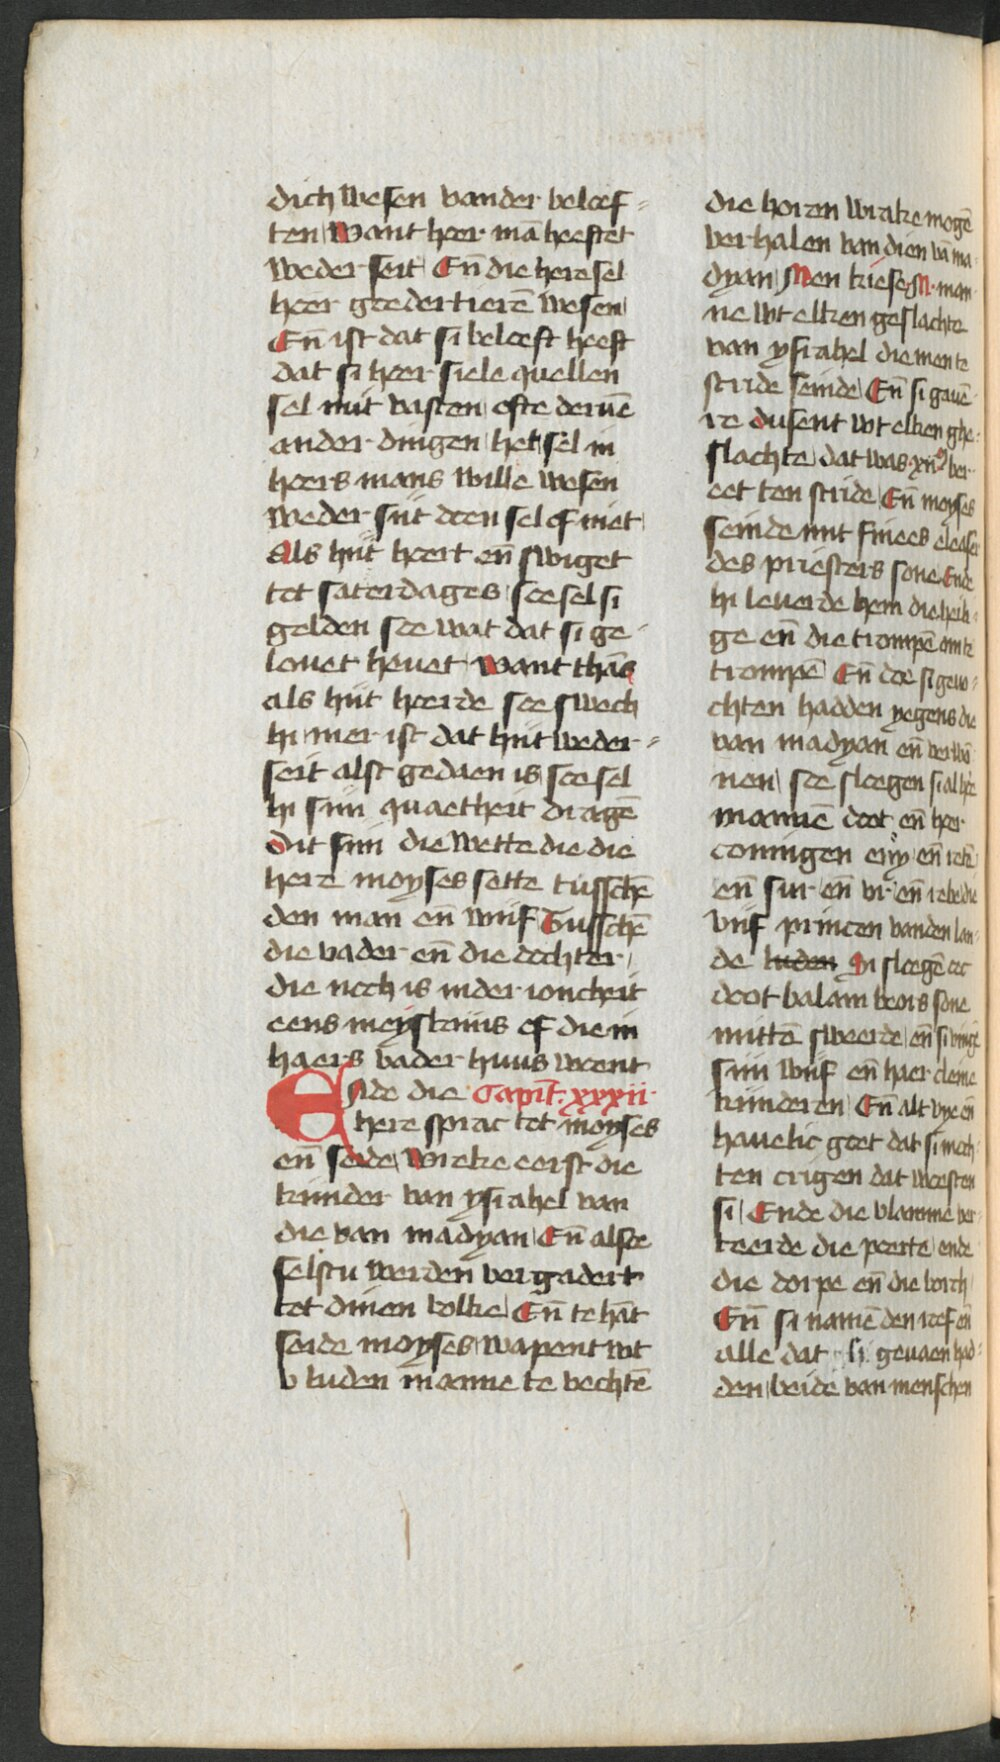 dich wesen vander beloef⸗
ten want heer mā heeftet
weder seit Eñ die here sel
heer goedertierē wesen
Eñ ist dat si beloeft heeft
dat si heer siele quellen
sel mit vasten ofte deruē
ander dingen het sel in
heers mans wille wesen
weder sijt doen sel of niet
Als hijt heert eñ swiget
tot saterdages soe sel si
gelden soe wat dat si ge⸗
louet heuet want thās
als hijt heerde soe swech
hi mer ist dat hijt weder⸗
seit alst gedaen is soe sel
hi sijn quaetheit dragē
Dit sijn die wette die die
here moyses sette tusschē
den man eñ wijf Tusschē
die vader eñ die dochter
die noch is inder ioncheit
eens meyskijns of die in
haers vader huus woent
Ende die Capit̄. xxxii
here sprac tot moyses
eñ seide wreke eerst die
kinder van ysrahel van
die van madyan Eñ alsoe
selstu werden vergadert
tot dinen volke Eñ te hāt
seide moyses wapent wt
v luden manne te vechtē
die horen wrake mogē
verhalen van dien vā ma
dyan Men kiese M. man
ne wt elken geslachte
van ysrahel die men te
stride seinde Eñ si gauē
re dusent wt elken ghe⸗
slachte dat was xii ber
eet ten stride Eñ moyses
seinde mit finees eleaser
des priesters sone Ende
hi leuerde hem die heili⸗
ge eñ die trompē om te
trompē Eñ doe si geuo⸗
chten hadden yegens die
van madyan eñ verwō
nen soe sloegen si al hoer
mannē doot eñ heer
coningen euy eñ rekē
eñ sur eñ vr eñ rebe die
vijf princen vanden lan⸗
de luden In sloegē oec
doot balam beors sone
mittē sweerde eñ si vingē
sijn wijf eñ haer cleine
kinderen Eñ alt vye eñ
hauelic goet dat si moch
ten crigen dat woesten
si Ende die vlamme ver
teerde die poerte ende
die dorpe eñ die borch
Eñ si namē den roef eñ
alle dat si geuaen had⸗
den beide van menschen